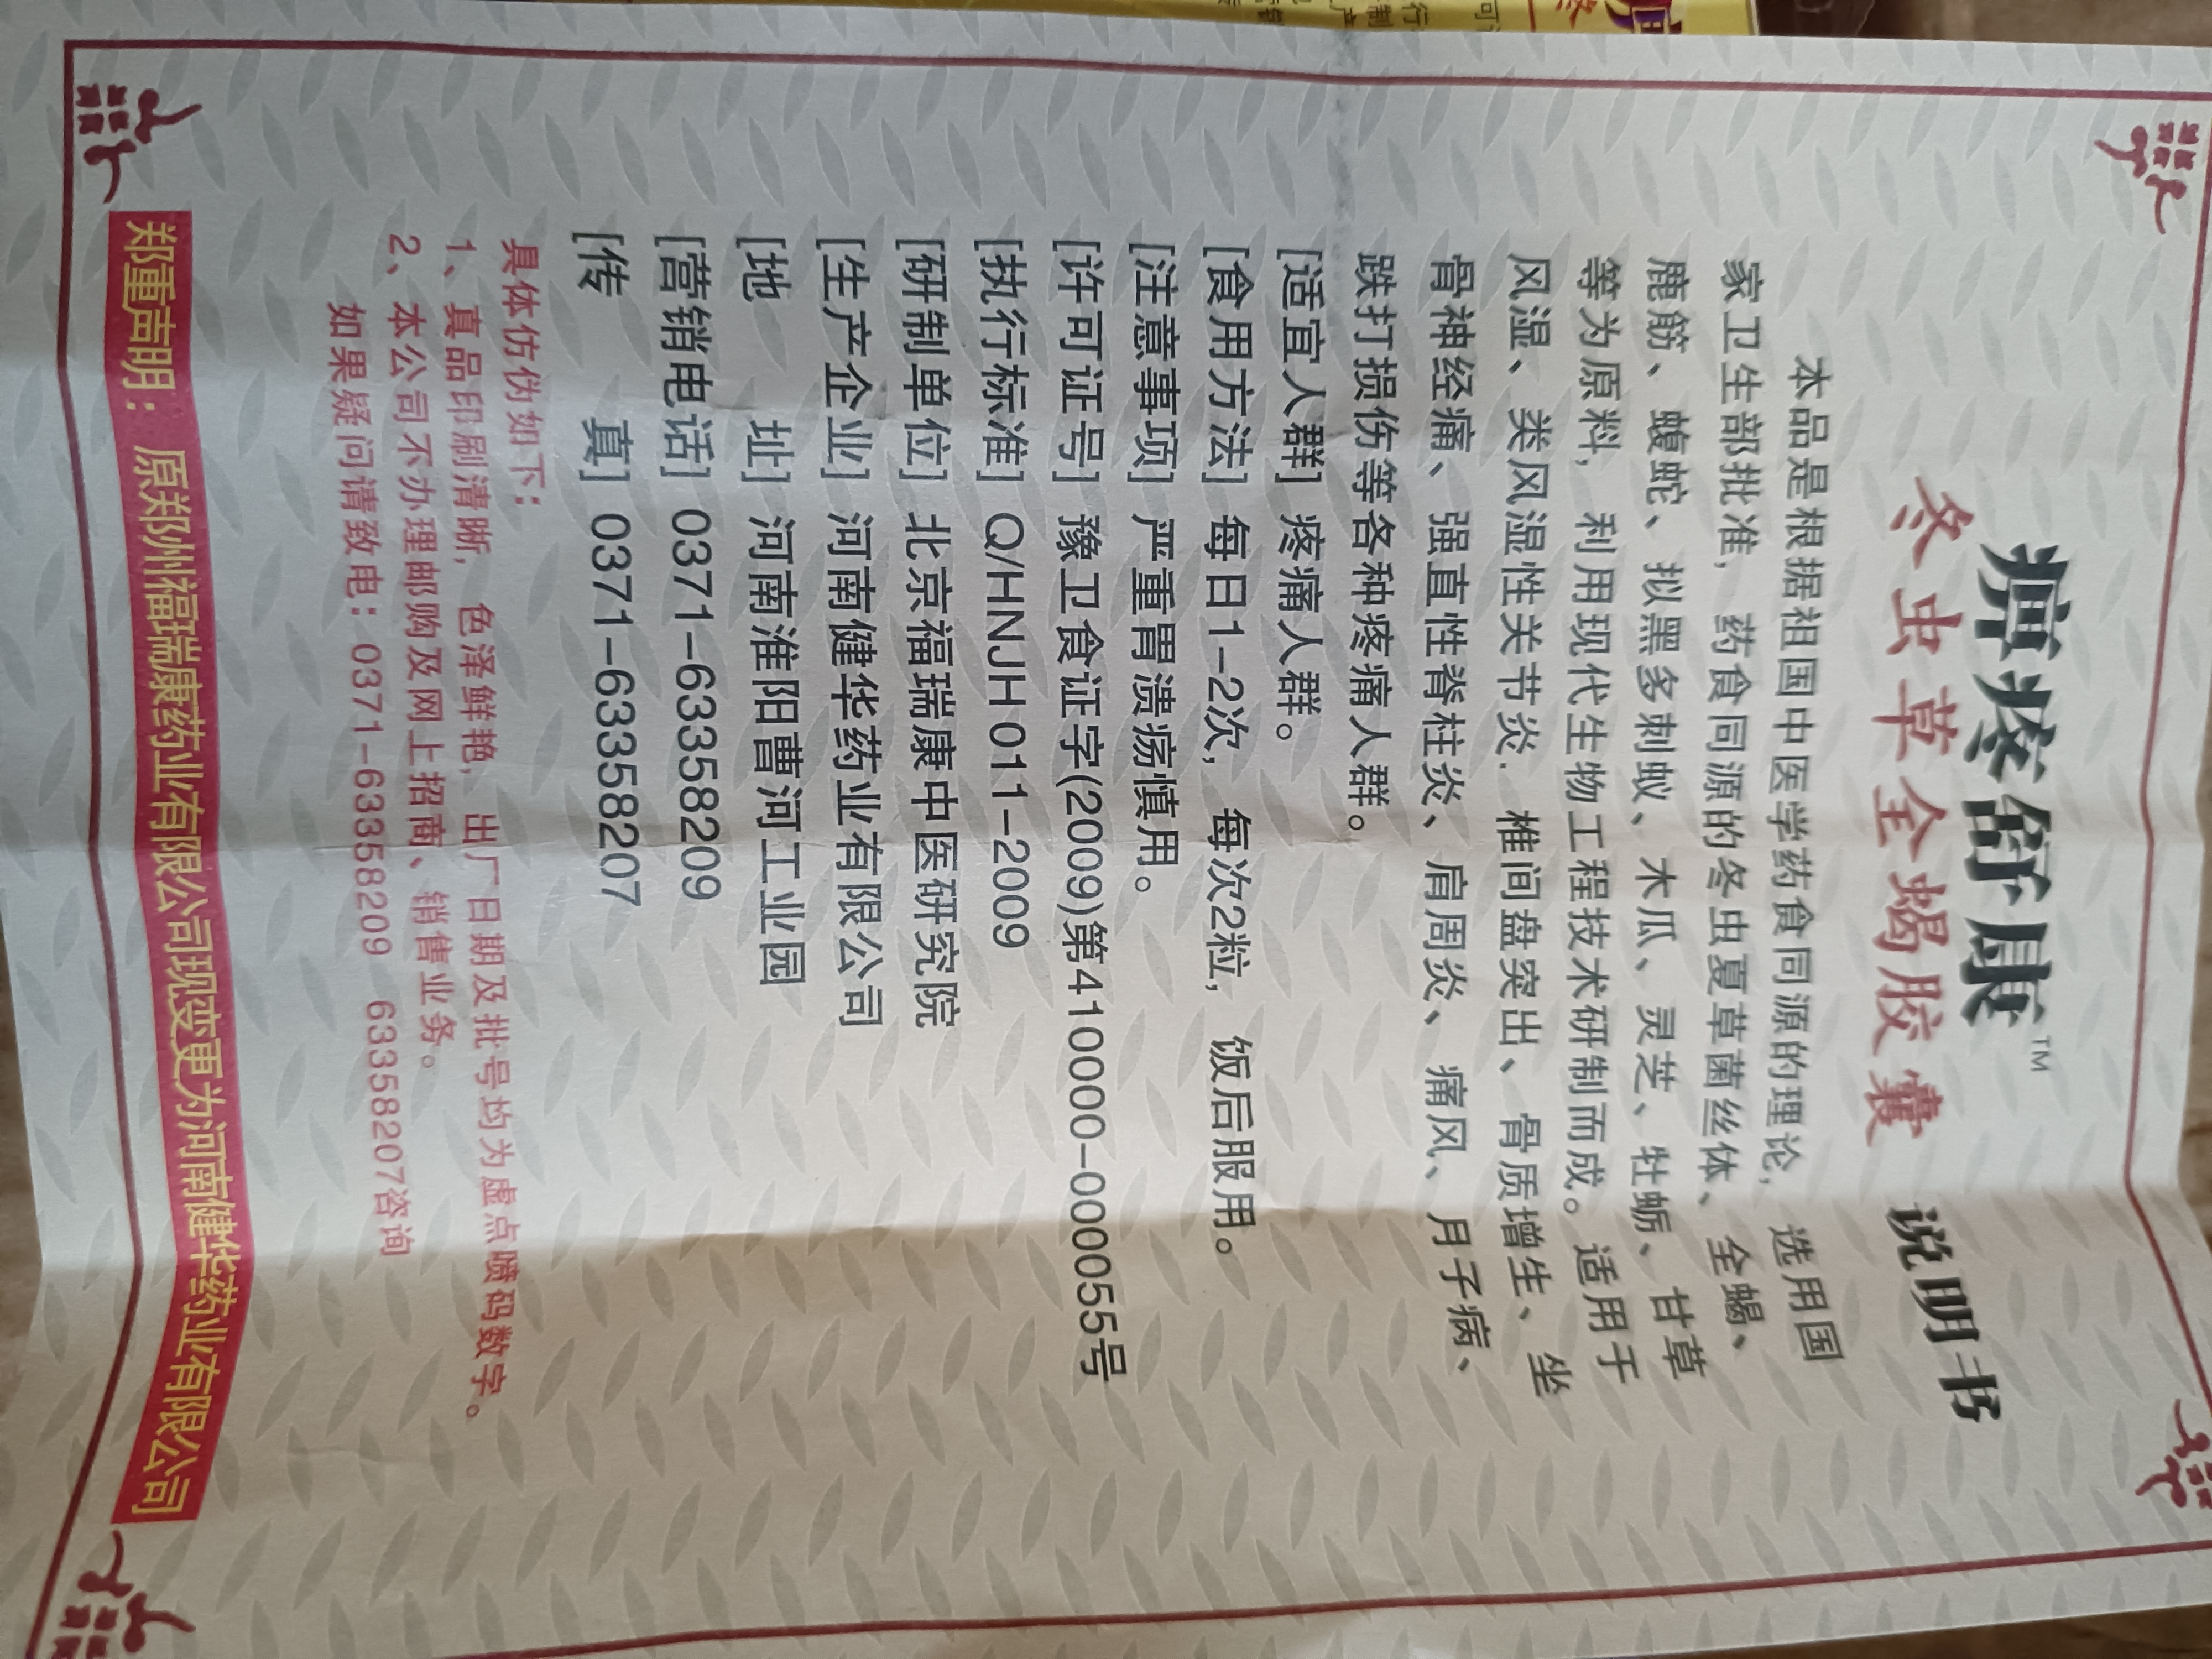 痹疼舒康™
冬虫草全蝎胶囊 说明书
本品是根据祖国中医学药食同源的理论，选用国
家卫生部批准，药食同源的冬虫夏草菌丝体、全蝎、
鹿筋、蝮蛇、拟黑多刺蚁、木瓜、灵芝、牡蛎、甘草
等为原料，利用现代生物工程技术研制而成。适用于
风湿、类风湿性关节炎.椎间盘突出、骨质增生、坐
骨神经痛、强直性脊柱炎、肩周炎、痛风、月子病、
跌打损伤等各种疼痛人群。
[适宜人群] 疼痛人群。
[食用方法] 每日1-2次，每次2粒，饭后服用。
[注意事项] 严重胃溃疡慎用。
[许可证号] 豫卫食证字(2009)第410000-000055号
[执行标准] Q/HNJH 011-2009
[研制单位] 北京福瑞康中医研究院
[生产企业] 河南健华药业有限公司
[地 址] 河南淮阳曹河工业园
[营销电话] 0371-63358209
[传 真] 0371-63358207
具体仿伪如下：
1、真品印刷清晰，色泽鲜艳，出厂日期及批号均为虚点喷码数字。
2、本公司不办理邮购及网上招商、销售业务。
如果疑问请致电：0371-63358209 63358207咨询
郑重声明：原郑州福瑞康药业有限公司现变更为河南健华药业有限公司